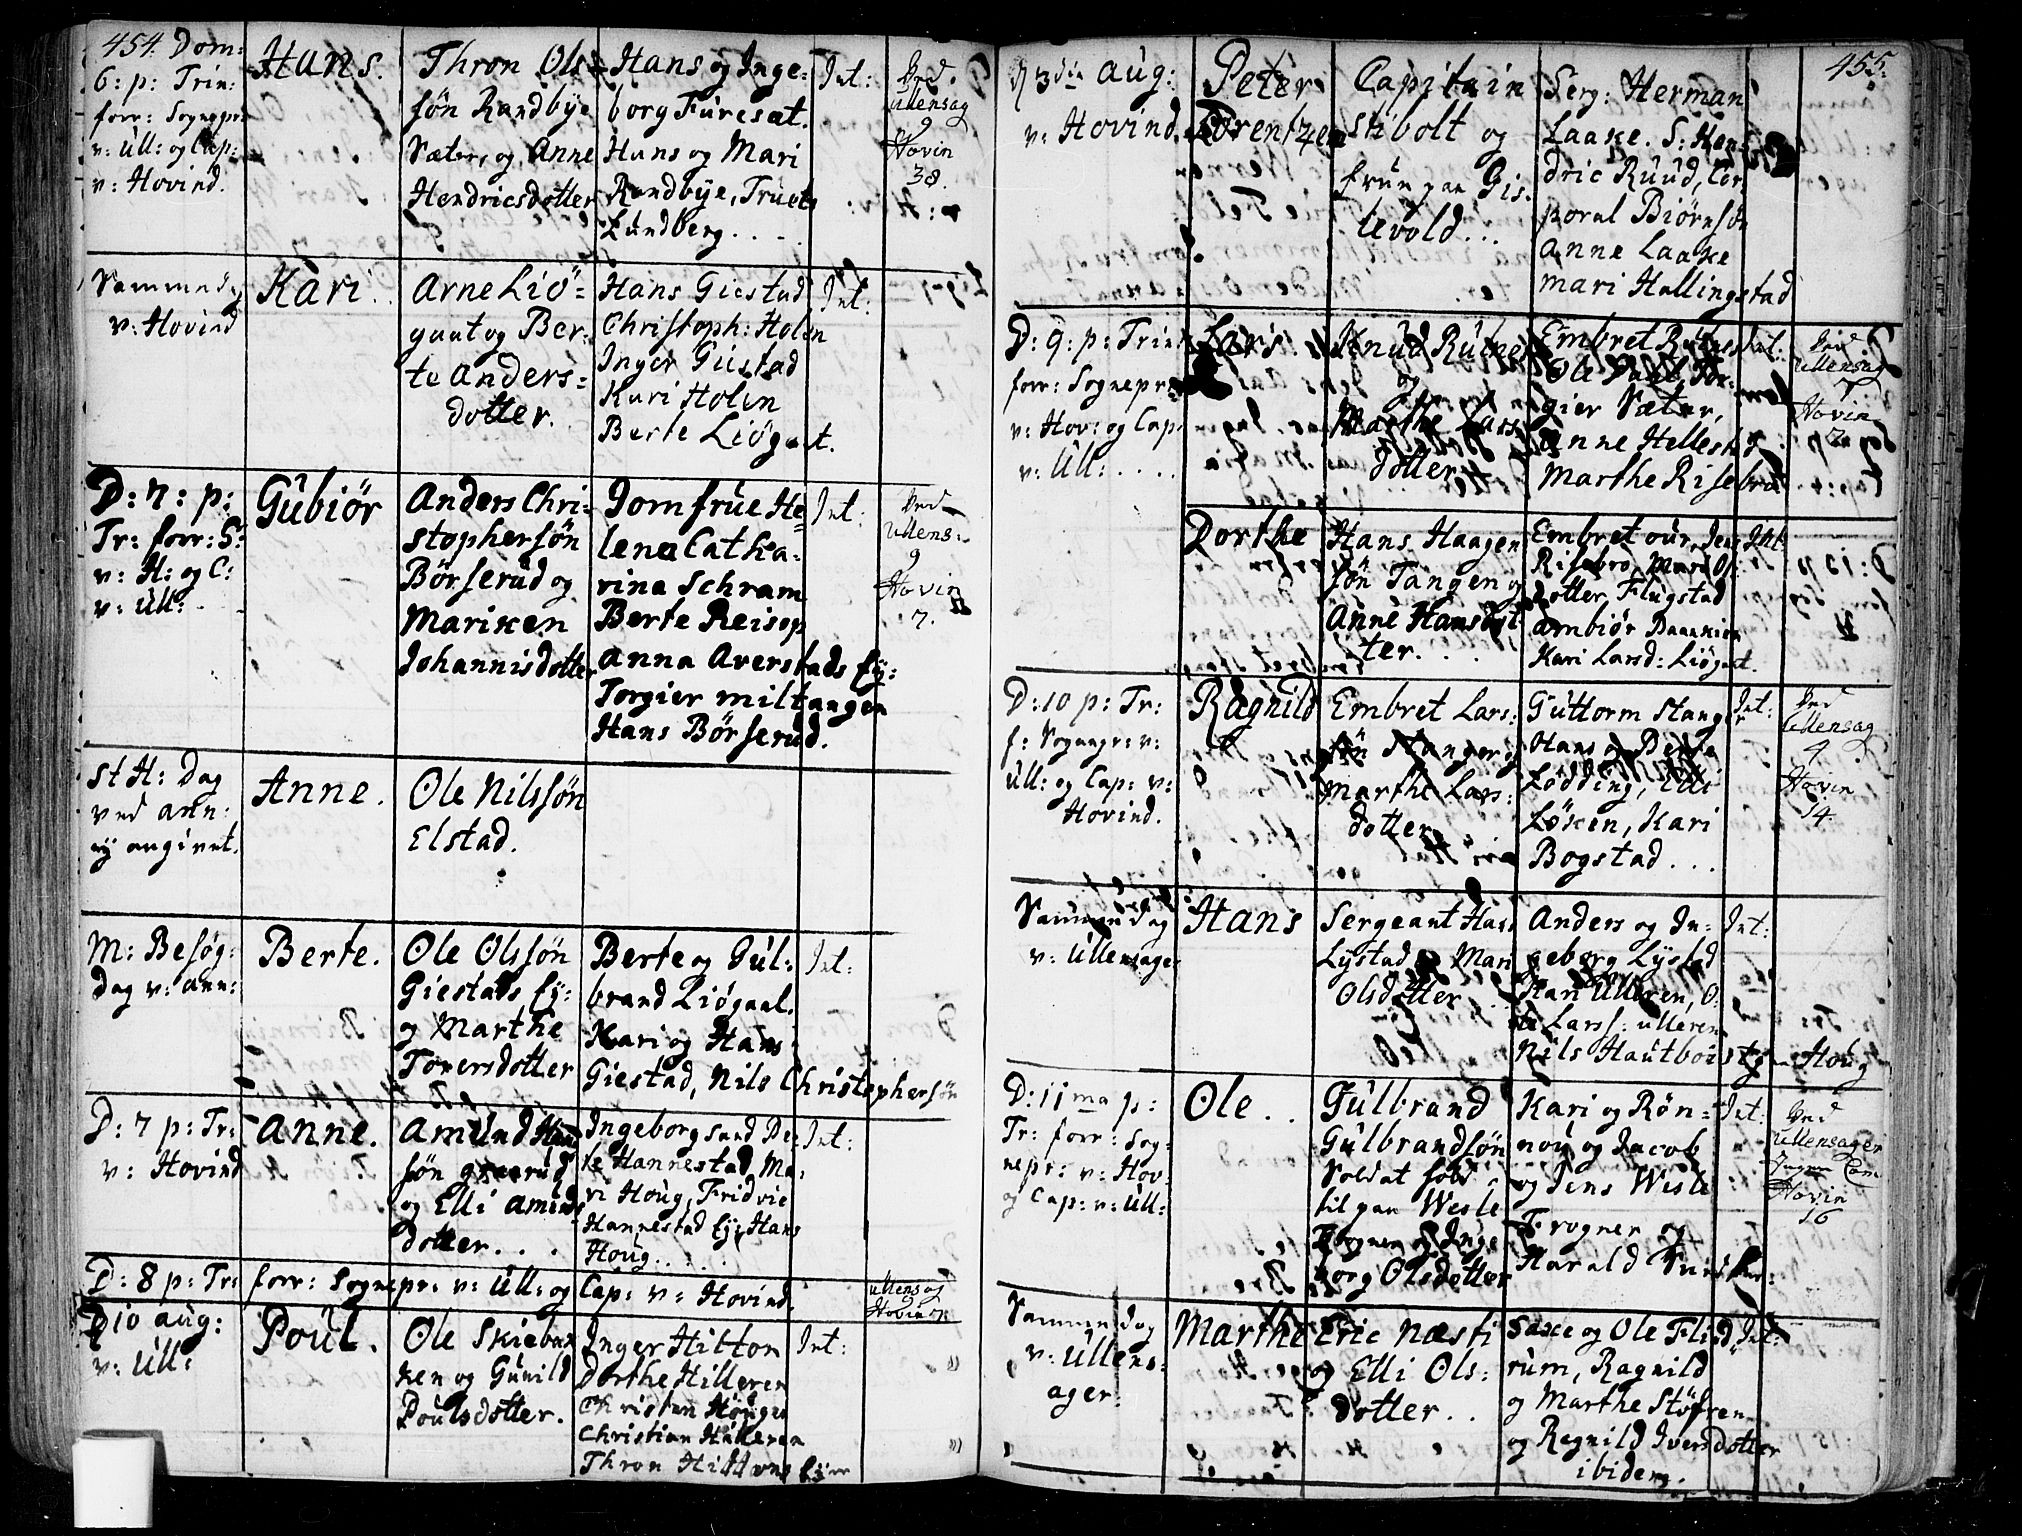 454. Dom:
6: p: Trin:
forr: Sognepr:
v: Ull: og Cap:
v: Hovind.
Hans.
Thron Ols
søn Randbye
Sæter, og Anne
Hendricsdotter
Hans og Inge=
borg Furesat.
Hans og Mari
Randbye, Truels
Lundberg . . . .
Int:
Ved.
Ullensag
9
Hovin
38.
Samme d.
v: Hovind
Kari.
Arne Liø=
gaat og Ber=
te Anders=
dotter.
Hans Giestad
Christoph: Holen
Inger Giestad
Kari Holen
Berte Liøgaat.
Int:
D: 7: p:
Tr: forr: S:
v: H: og C:
v: Ull:
Gubiør
Anders Chri=
stophersøn
Børserud og
Mariken
Johannisdotter
Jomfrue He=
lena Catha=
rina Schram
Berte Reisop
Anna Averstads Ey:
Torgier miltangen
Hans Børserud.
Int:
Ved
Ullens:
9
Hovin
7.
St H: Dag
ved ann:
ey angivet.
Anne.
Ole Nilssøn
Elstad.
M: Besøg=
dag v: ann:
Berte.
Ole Olssøn
Giestads Ey:
og Marthe
Toversdotter
Berte og Gul=
brand Liøgaat.
Kari og Hans
Giestad, Nils Christophersøn
Int:
D: 7 p: Tr:
v: Hovind
Anne.
Amund
søn
og Elli Amunds
dotter. . .
Ingeborg Sand Ber
te Hannestad, Ma=
ri Houg, Fridric
Hannestad Ey: Hans
Houg . . . .
Int:
D: 8 p: Tr: forr: Sognepr: v: Ull: og Cap: v: Hovind.
Ullensag
Hovin
D 10 aug:
v: Ull:
Poul.
Ole Skiebak
ken og Gunild
Poulsdotter.
Inger Hilton
Dorthe Hilleren
Christen Houger
Christian Hilleren
Thron Hiltons Eyer
Int:
455.
d 3die Aug:
v: Hovind.
Peter
Lorentzen
Capitain
Stibolt og
frue paa Gis=
tevold . . .
Serg: Herman
Laake. S: Hen=
dric Ruud, Cor
poral Biørnsøn
Anne Laake
Mari Hallingstad
D: 9: p: Trin:
forr: Sognepr:
v: Hov: og Cap:
v: Ull: . . . .
Lars.
Knud Rutnes
og
Marthe Lars
dotter
Embret Rutnes
Ole
gier Sæter,
Anne Hellest
Marthe Risebrot
Int:
Ved
Ullensag
7
Hovin
Dorthe
Hans Haagen
søn Tangen og
Anne Hansdot
ter. . .
Embret our, Jens
Risebro, Mari Ols
dotter, Flugstad
Ambiør
Kari Larsd: Liøgaat.
Int:
D: 10 p: Tr:
f: Sognepr: v:
Ull: og Cap: v:
Hovind.
Ragnild
Embret Lars:
søn Stanger og
Marthe Lars:
dotter
Guttorm Stanger
Hans og Berte
Lødding, Elli
Løken, Kari
Bogstad . . .
Int:
Ved
Ullensag
4
Hovin
14.
Samme dag
v: Ullensager
Hans
Sergeant Hans
Lystad og Mari
Olsdotter
Anders og In=
geborg Lystad
Kari Ulleren, O
le Larss: ulleren
Nils Hautboist
Houg
Int:
D: 11ma p:
Tr: forr: Sog=
nepr: v: Hov:
og Cap: v: Ull:
Ole.
Gulbrand
Gulbrandsøn
Soldat fød
til paa Wesle
Frogner og Inge
borg Olsdotter
Kari og Røn=
nou og Jacob
og Jens Wesle
Frogner og
Harald
Int:
Ved
Ullensager
Ingen Com
Hovin
16
Samme dag
v: Ullens=
ager:
Marthe
Eric Næsti
og Elli Ols=
dotter. .
Saxe og Ole Flid
rum, Ragnild
og Marthe Støfren
og Regnild Iversdotter
ibidem.
Int: